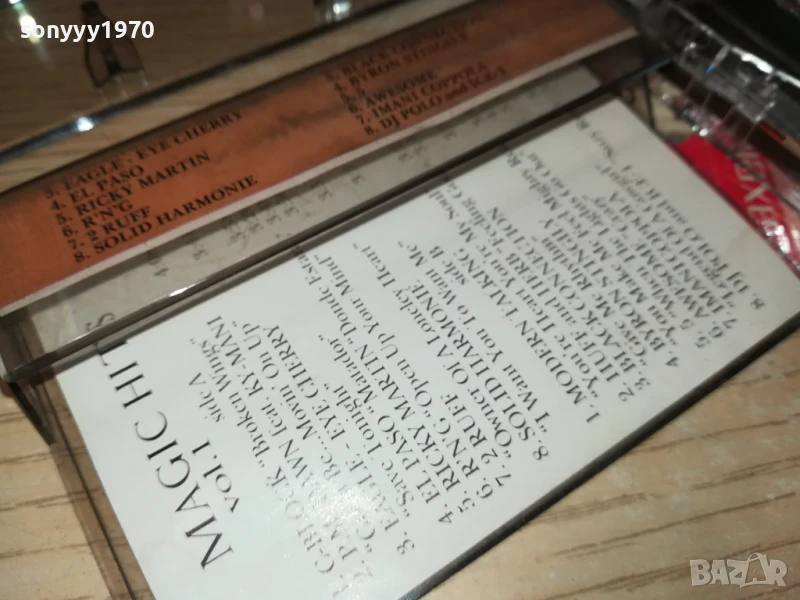 sonyyy1970
3. EAGLE - EYE CHERRY
4. EL PASO
5. RICKY MARTIN
6. R'N'G
7. 2 RUFF
8. SOLID HARMONIE
4. BYRON STINGILY
5.
6. AWESOME
7. IMANI COPPOLA
8. DJ POLO and
MAGIC HITS
vol.1
side A
G-BLOCK "Broken Wings"
2. P.M. DAWN feat. KY-MANI
"Gotta Be.. Movin' On Up"
3. EAGLE - EYE CHERRY
"Save Tonight"
4. EL PASO "Matador"
5. RICKY MARTIN "Donde Esta
6. R'N'G "Open Up Your Mind"
7. 2 RUFF
"Owner Of A Lonely Heart"
8. SOLID HARMONIE
"I Want You To Want Me"
side B
1. MODERN TALKING
"You're My Heart You're My Soul
2. HUFF and HERB "Feeling Good
3. BLACK CONNECTION
"Give Me Rhythm"
4. BYRON STINGILY
"You Make Me Feel Mighty Re
5. 5 "When The Lights Go Out"
6. AWESOME "Crazy"
7. IMANI COPPOLA
"Legend Of A Cowgirl"
8. DJ POLO and ICE-T
BAZAR